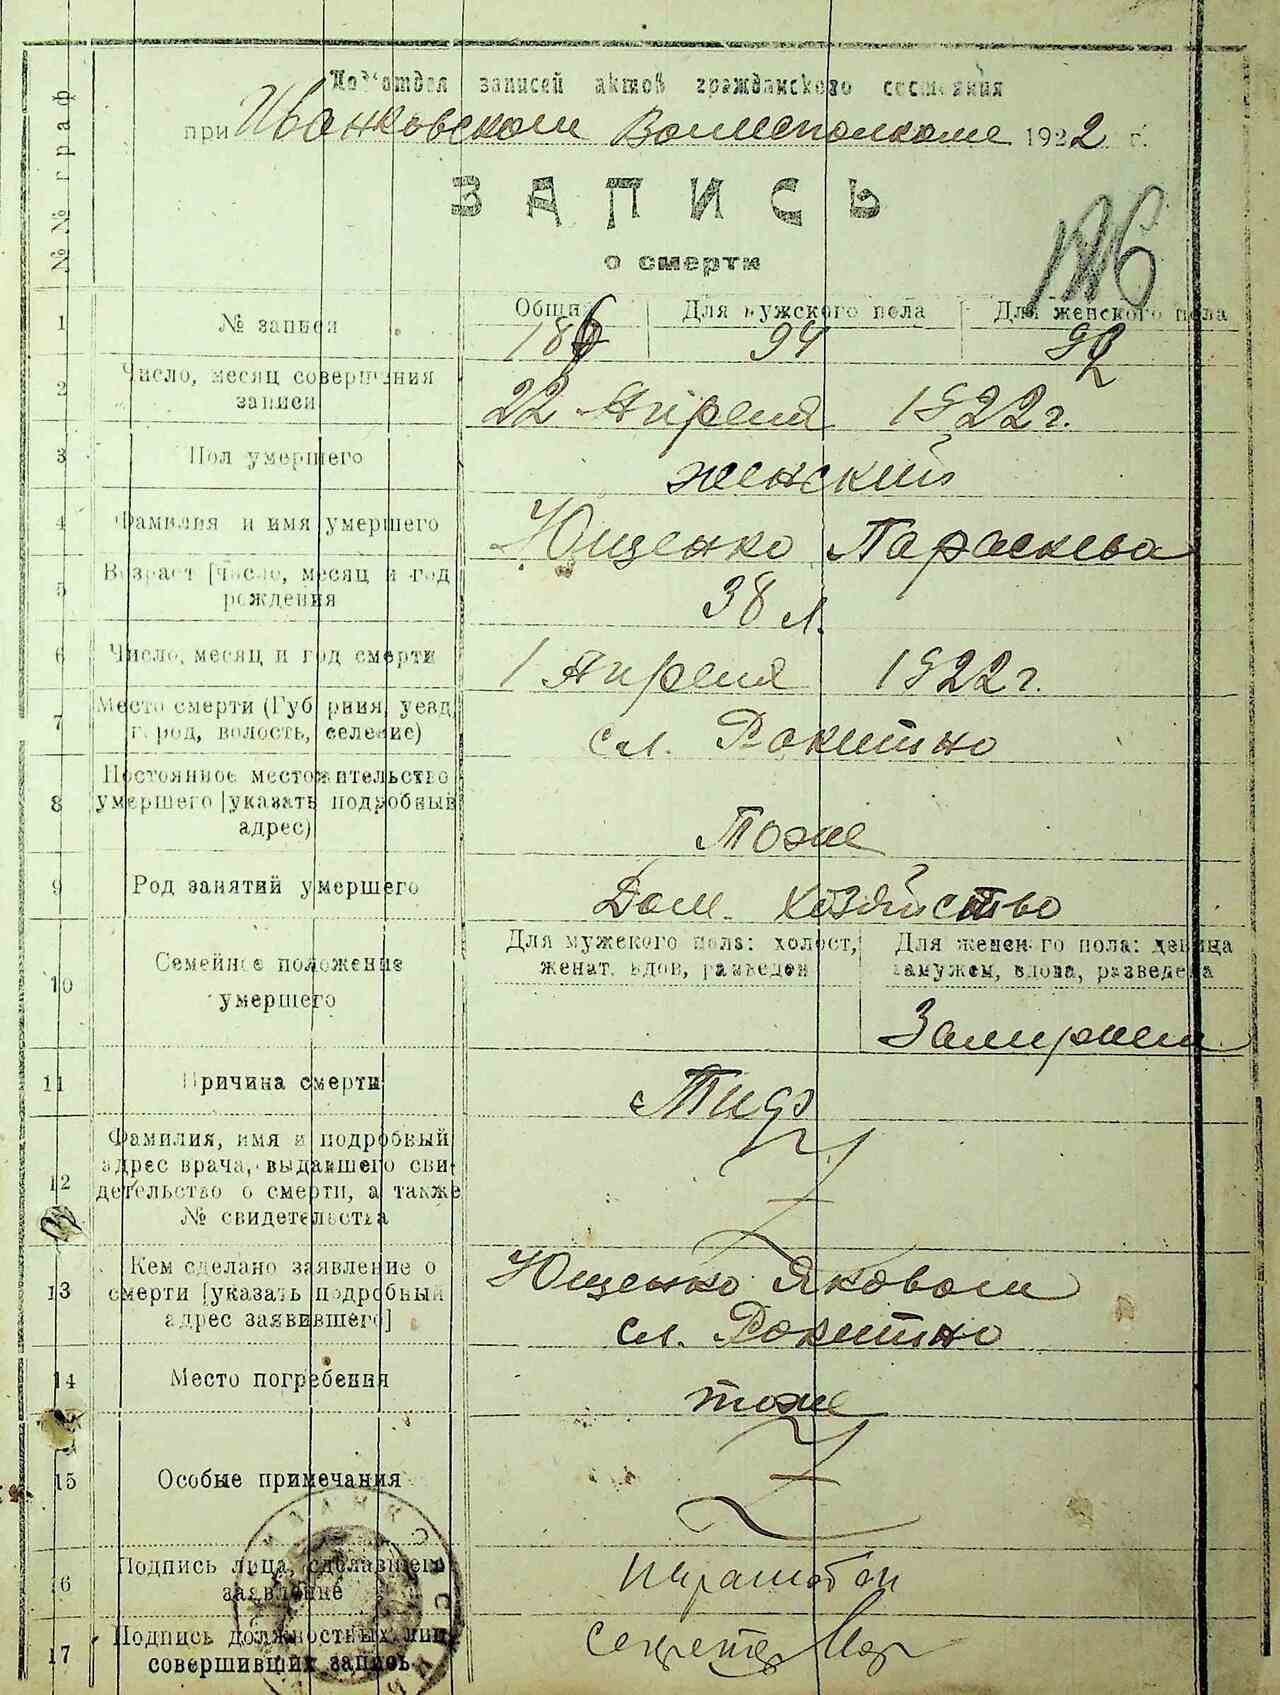 Под'отдел записей актов гражданского состояния
при Иванковском Волисполкоме 1922 г.
ЗАПИСЬ
о смерти
№№ граф
1 № записи
Общий Для мужского пола Для женского пола
186 94 92
2 Число, месяц совершения
записи
22 Апреля 1922 г.
3 Пол умершего
женский
4 Фамилия и имя умершего
Ющенко Параскева
5 Возраст [число, месяц и год
рождения
38 л.
6 Число, месяц и год смерти
1 Апреля 1922 г.
7 Место смерти (Губерния, уезд,
город, волость, селение)
сл. Рокитно
8 Постоянное местожительство
умершего [указать подробный
адрес)
Тоже
9 Род занятий умершего
Дом. хозяйство
10 Семейное положение
умершего
Для мужского пола: холост,
женат, вдов, разведен
Для женского пола: девица
замужем, вдова, разведена
11 Причина смерти
Тиф
12 Фамилия, имя и подробный
адрес врача, выдавшего сви-
детельство о смерти, а также
№ свидетельства
13 Кем сделано заявление о
смерти [указать подробный
адрес заявившего]
Ющенко Яковом
сл. Рокитно
14 Место погребения
тоже
15 Особые примечания
16 Подпись лица, сделавшего
заявление
17 Подпись должностных лиц,
совершивших запись